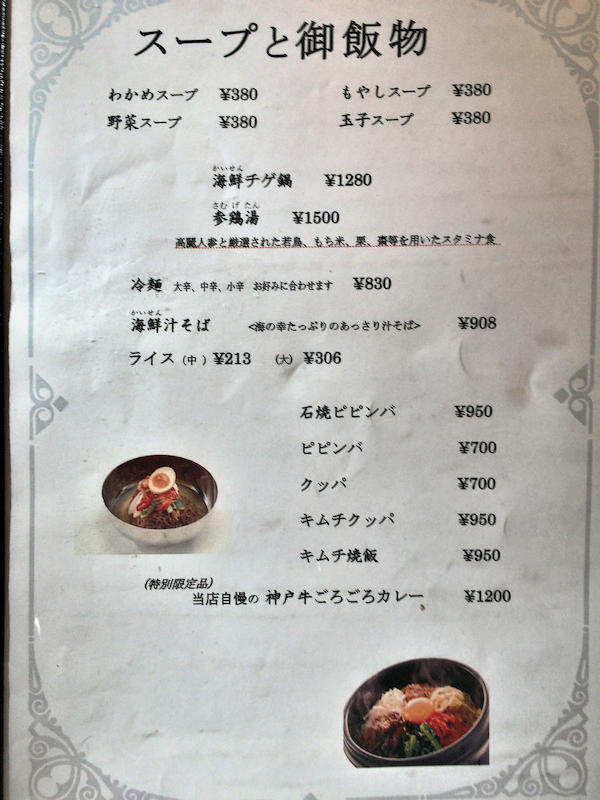 スープと御飯物
わかめスープ ¥380 もやしスープ ¥380
野菜スープ ¥380 玉子スープ ¥380
かいせん
海鮮チゲ鍋 ¥1280
さむ げ たん
参鶏湯 ¥1500
高麗人参と厳選された若鳥、もち米、栗、棗等を用いたスタミナ食
冷麺 大辛、中辛、小辛 お好みに合わせます ¥830
かいせん
海鮮汁そば <海の幸たっぷりのあっさり汁そば> ¥908
ライス (中) ¥213 (大) ¥306
石焼ピピンバ ¥950
ピピンバ ¥700
クッパ ¥700
キムチクッパ ¥950
キムチ焼飯 ¥950
(特別限定品)
当店自慢の 神戸牛ごろごろカレー ¥1200